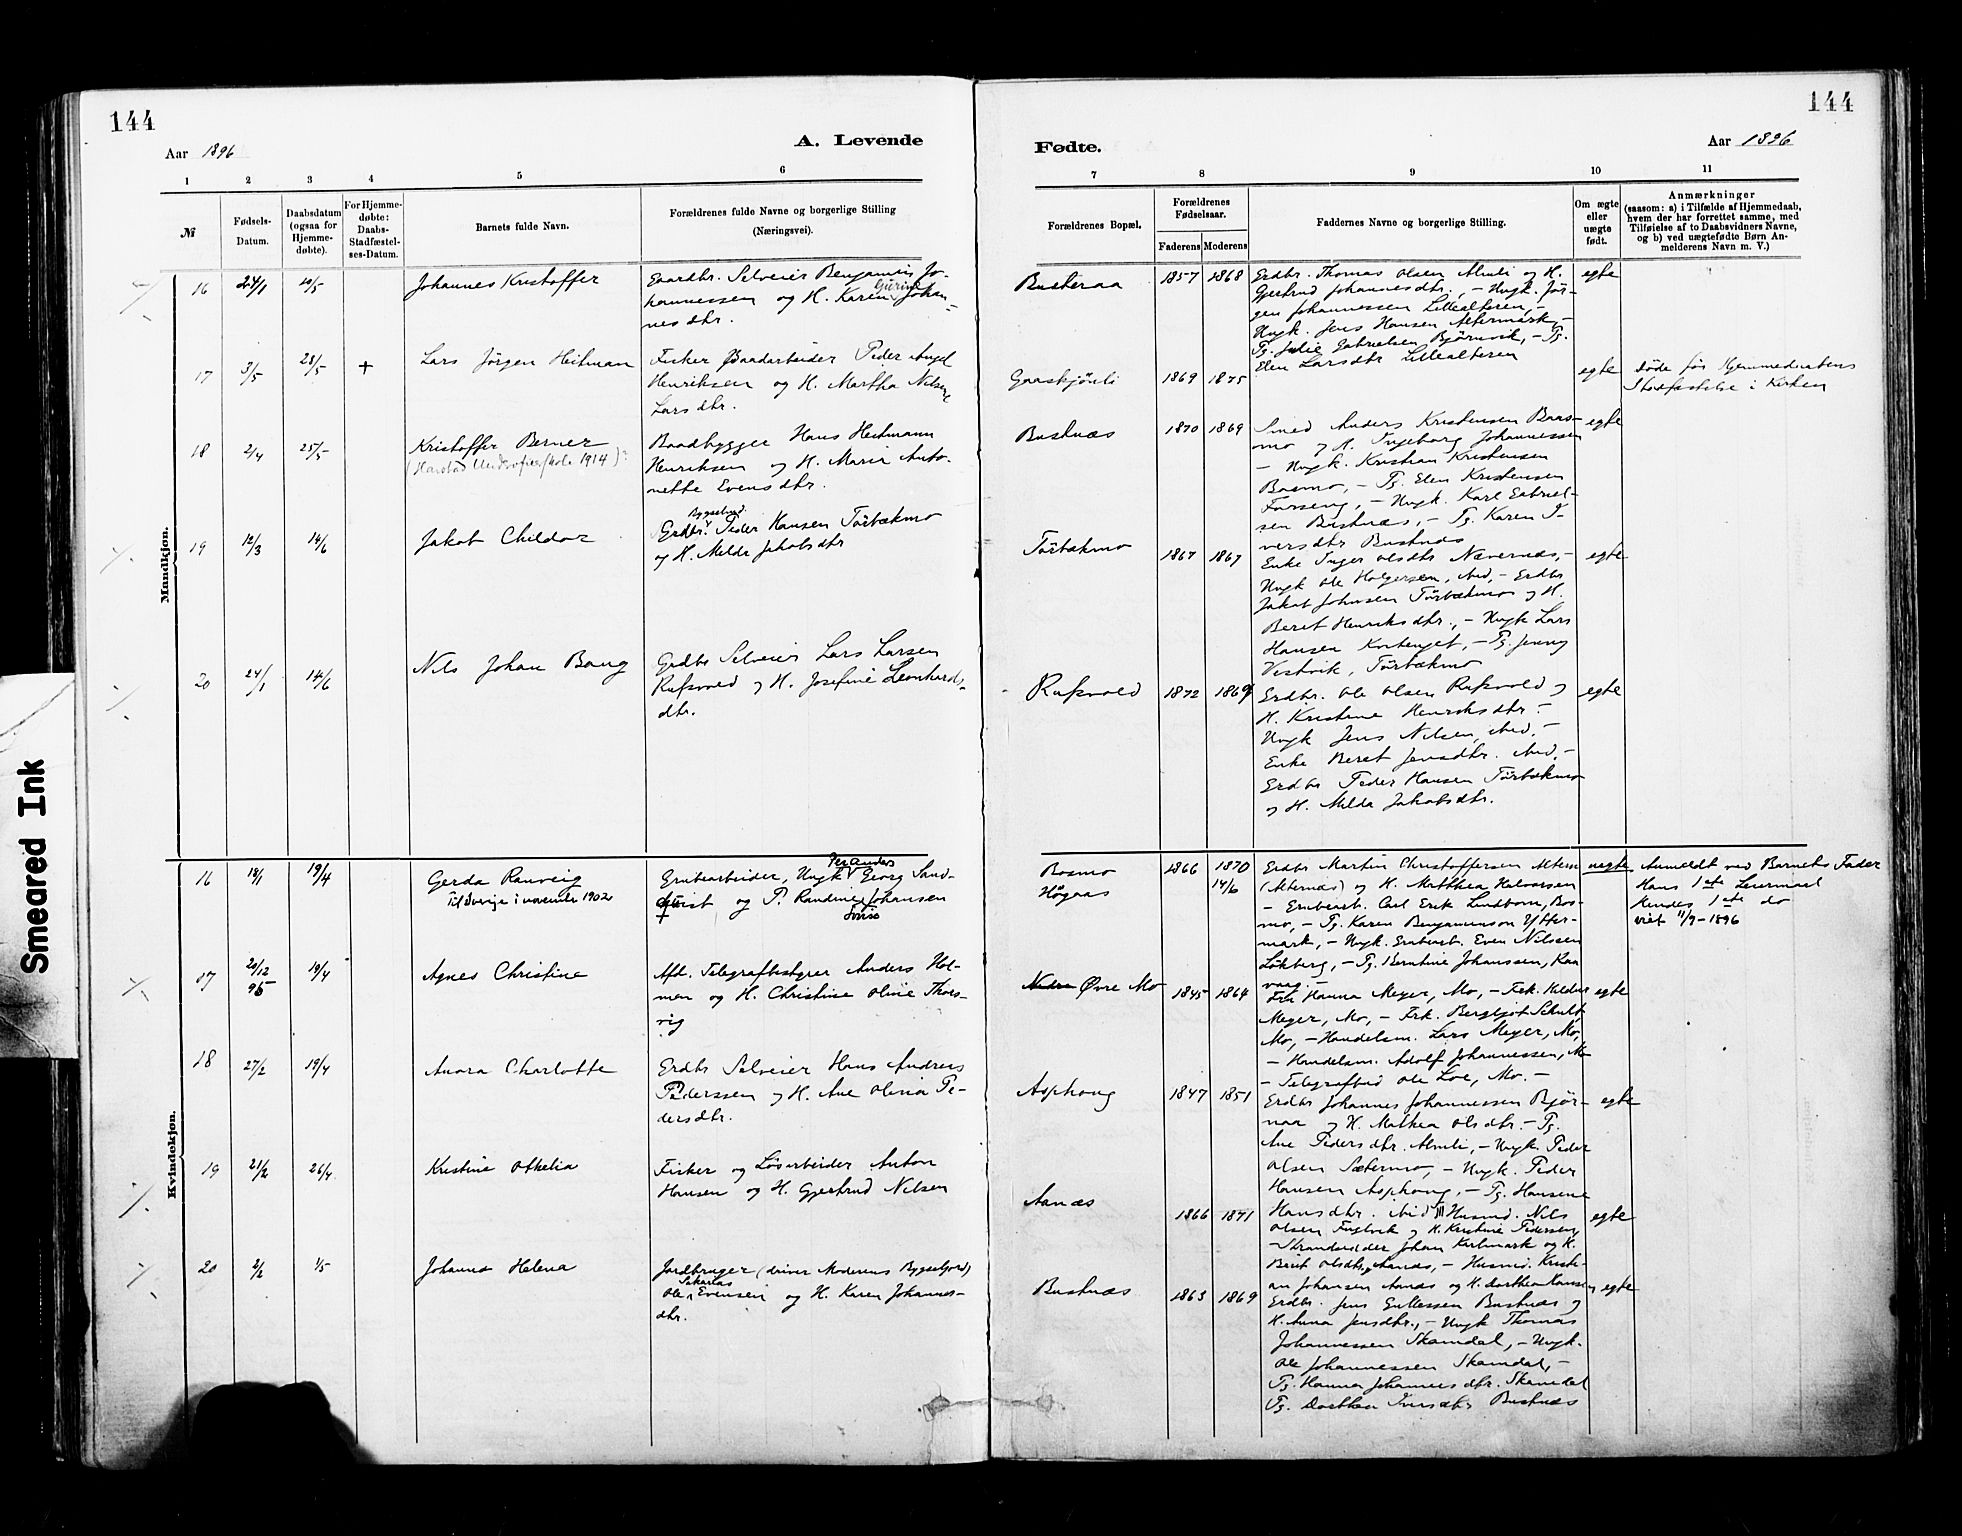 144
144
A. Levende
Fødte.
Aar 1896
Aar 1896
1 2 3 4 5 6
7 8 9 10 11
№
Fødsels-
Datum.
Daabsdatum
(ogsaa for
Hjemme-
døbte).
For Hjemme-
døbte:
Daabs-
Stadfæstel-
ses-Datum.
Barnets fulde Navn.
Forældrenes fulde Navne og borgerlige Stilling
(Næringsvei).
Forældrenes Bopæl.
Forældrenes
Fødselsaar.
Faderens Moderens
Faddernes Navne og borgerlige Stilling.
Om ægte
eller
uægte
født.
Anmærkninger
(saasom: a) i Tilfælde af Hjemmedaab,
hvem der har forrettet samme, med
Tilføielse af to Daabsvidners Navne,
og b) ved uægtefødte Børn An-
melderens Navn m. V.)
Mandkjøn.
16 24/1 10/5
Johannes Kristoffer
Gaardbr. Selveier Benjamin Jo-
hannessen og H. Karen Johan-
nesdtr.
Busteraa
1857 1868
Grdbr. Thomas Olsen Almli og H.
Gjertrud Johannesdtr., - Ungk. Jør-
gen Johannessen Lillealteren, -
Ungk. Jens Hansen Altermark, -
Pg. Julie Gabrielsen Bjørnvik, - Pg.
Elen Larsdtr Lillealteren
egte
17 3/5 28/5 +
Lars Jørgen Heitman
Fisker Baadarbeider Peder Angel
Henriksen og H. Martha Nilsine
Larsdtr.
Gaaskjønli
1869 1875
egte
Døde før Hjemmedaabens
Stadfæstelse i Kirken
18 2/4 25/5
Kristoffer Berner
(Harstad Underofficerskole 1914)?
Baadbygger Hans Heitmann
Henriksen og H. Marie Anto-
nette Evensdtr.
Bustnæs
1870 1869
Smed Anders Kristensen Baas-
mo og H. Ingeborg Johannessen
- Ungk. Kristian Kristensen
Basmo, - Pg. Elen Kristensen
Forseng, - Ungk. Karl Gabriel-
sen Bustnæs, - Pg. Karen I-
versdtr Bustnæs
egte
19 12/3 14/6
Jakob Childor
Bygselmd.
Grdbr. Peder Hansen Tørbækmo
og H. Melda Jakobsdtr
Tørbækmo
1867 1867
Enke Inger Olsdtr Nævernæs, -
Ungk Ole Holgersen, ibid, - Grdbr
Jakob Johnsen Tørbækmo og H.
Beret Henriksdtr., - Ungk Lars
Hansen Kvitenget, - Pg. Jenny
Vestvik, Tørbækmo
egte
20 24/1 14/6
Nils Johan Bang
Grdbr Selveier Lars Larsen
Rufsvold og H. Josefine Leonhards-
dtr.
Rufsvold
1872 1869
Grdbr. Ole Olsen Rufsvold og
H. Kristine Henriksdtr -
Ungk Jens Nilsen, ibid, -
Enke Beret Jensdtr. ibid, -
Grdbr Peder Hansen Tørbækmo
og H. Melda Jakobsdtr.
egte
Kvindekjøn.
16 18/1 19/4
Gerda Ranveig
Til Sverige i november 1902
Per Anders
Grubearbeider, Ungk Georg Sand-
qvist og P. Randine Johansen
Basmo
Høgaas
1866 1870
14/6
Grdbr Martin Christoffersen Altern
(Alternæs) og H. Matthea Halvorsen
- Grubearb. Carl Erik Lindbom, Bos-
mo, - Pg. Karen Benjaminson Ytter-
mark, - Ungk. Grubearb. Even Nilssen
Løkberg, - Pg. Berntine Johanssen, Ran
vaag. -
uegte
Anmeldt ved Barnets Fader
Hans 1ste Leiermaal
Hendes 1ste do
viet 11/9-1896
17 20/12 95 19/4
Agnes Christine
Afd. Telegrafbestyrer Anders Hol-
men og H. Christine Oline Thors-
vig
Nedre Øvre Mo
1845 1864
Fru Hanna Meyer, Mo, - Frk. Hildur
Meyer, Mo, - Frk. Bergljot Schult,
Mo, - Handelsm. Lars Meyer, Mo,
- Handelsm. Adolf Johannessen, M
- Telegrafbud Ole Loe, Mo. -
egte
18 27/2 19/4
Anora Charlotte
Grdbr Selveier Hans Andreas
Pederssen og H. Ane Olivia Pe-
dersdtr.
Asphaug
1847 1851
Grdbr Johannes Johannessen Bjør-
naa og H. Mathea Olsdtr. - Pg.
Ane Pedersdtr. Almli, - Ungk. Peder
Olsen Sætermo, - Ungk. Peder
Hansen Asphaug, - Pg. Hansene
Hansdtr. ibid
egte
19 21/2 26/4
Kristine Othelia
Fisker og Løsarbeider Anton
Hansen og H. Gjertrud Nilsen
Aanæs
1866 1871
Husmd. Nils
Olsen Fuglvik og H. Kristine Pedersen,
- Strandsidder Johan Kvitmark og H.
Berit Olsdtr, Aanæs, - Husmd. Kristi-
an Johansen Aanæs og H. Dorthea Hansen
egte
20 2/2 1/5
Johanna Helena
Jordbruger (driver Moderens Bygseljord)
Sakarias
Ole Evensen og H. Karen Johannes-
dtr.
Bustnæs
1863 1869
Grdbr. Jens Gullessen Bustnæs og
H. Anna Jensdtr., - Ungk Thomas
Johannessen Skamdal, - Ungk.
Ole Johannessen Skamdal, -
Pg. Hanna Johannesdtr. Skamdal
Pg. Dorthea Iversdtr Bustnæs
egte
Smeared Ink